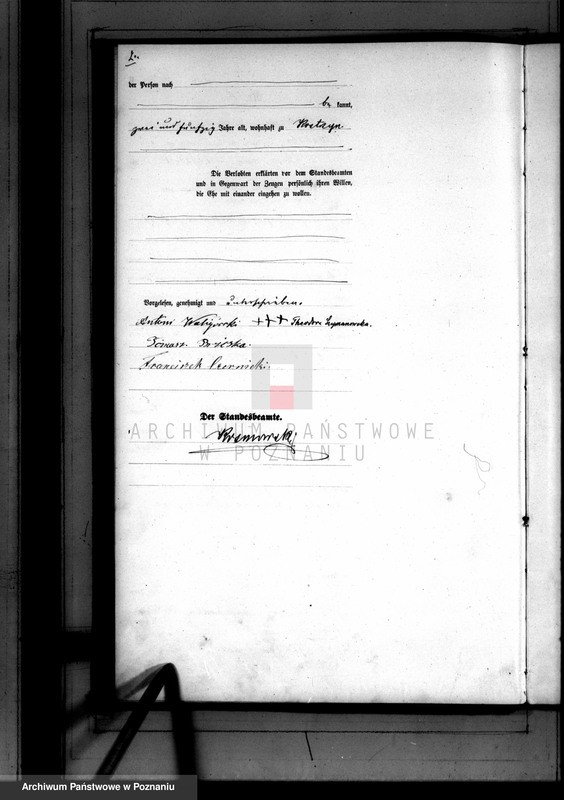 2.
der Person nach
be kannt,
zwei und fünfzig Jahre alt, wohnhaft zu Kostzyn
Die Verlobten erklärten vor dem Standesbeamten
und in Gegenwart der Zeugen persönlich ihren Willen,
die Ehe mit einander eingehen zu wollen.
Vorgelesen, genehmigt und unterschrieben.
Antoni Waligórski +++ Theodora Szymanowska.
Tomasz
Franciszek Czernicki.
Der Standesbeamte.
ARCHIWUM PAŃSTWOWE
W POZNANIU
Archiwum Państwowe w Poznaniu